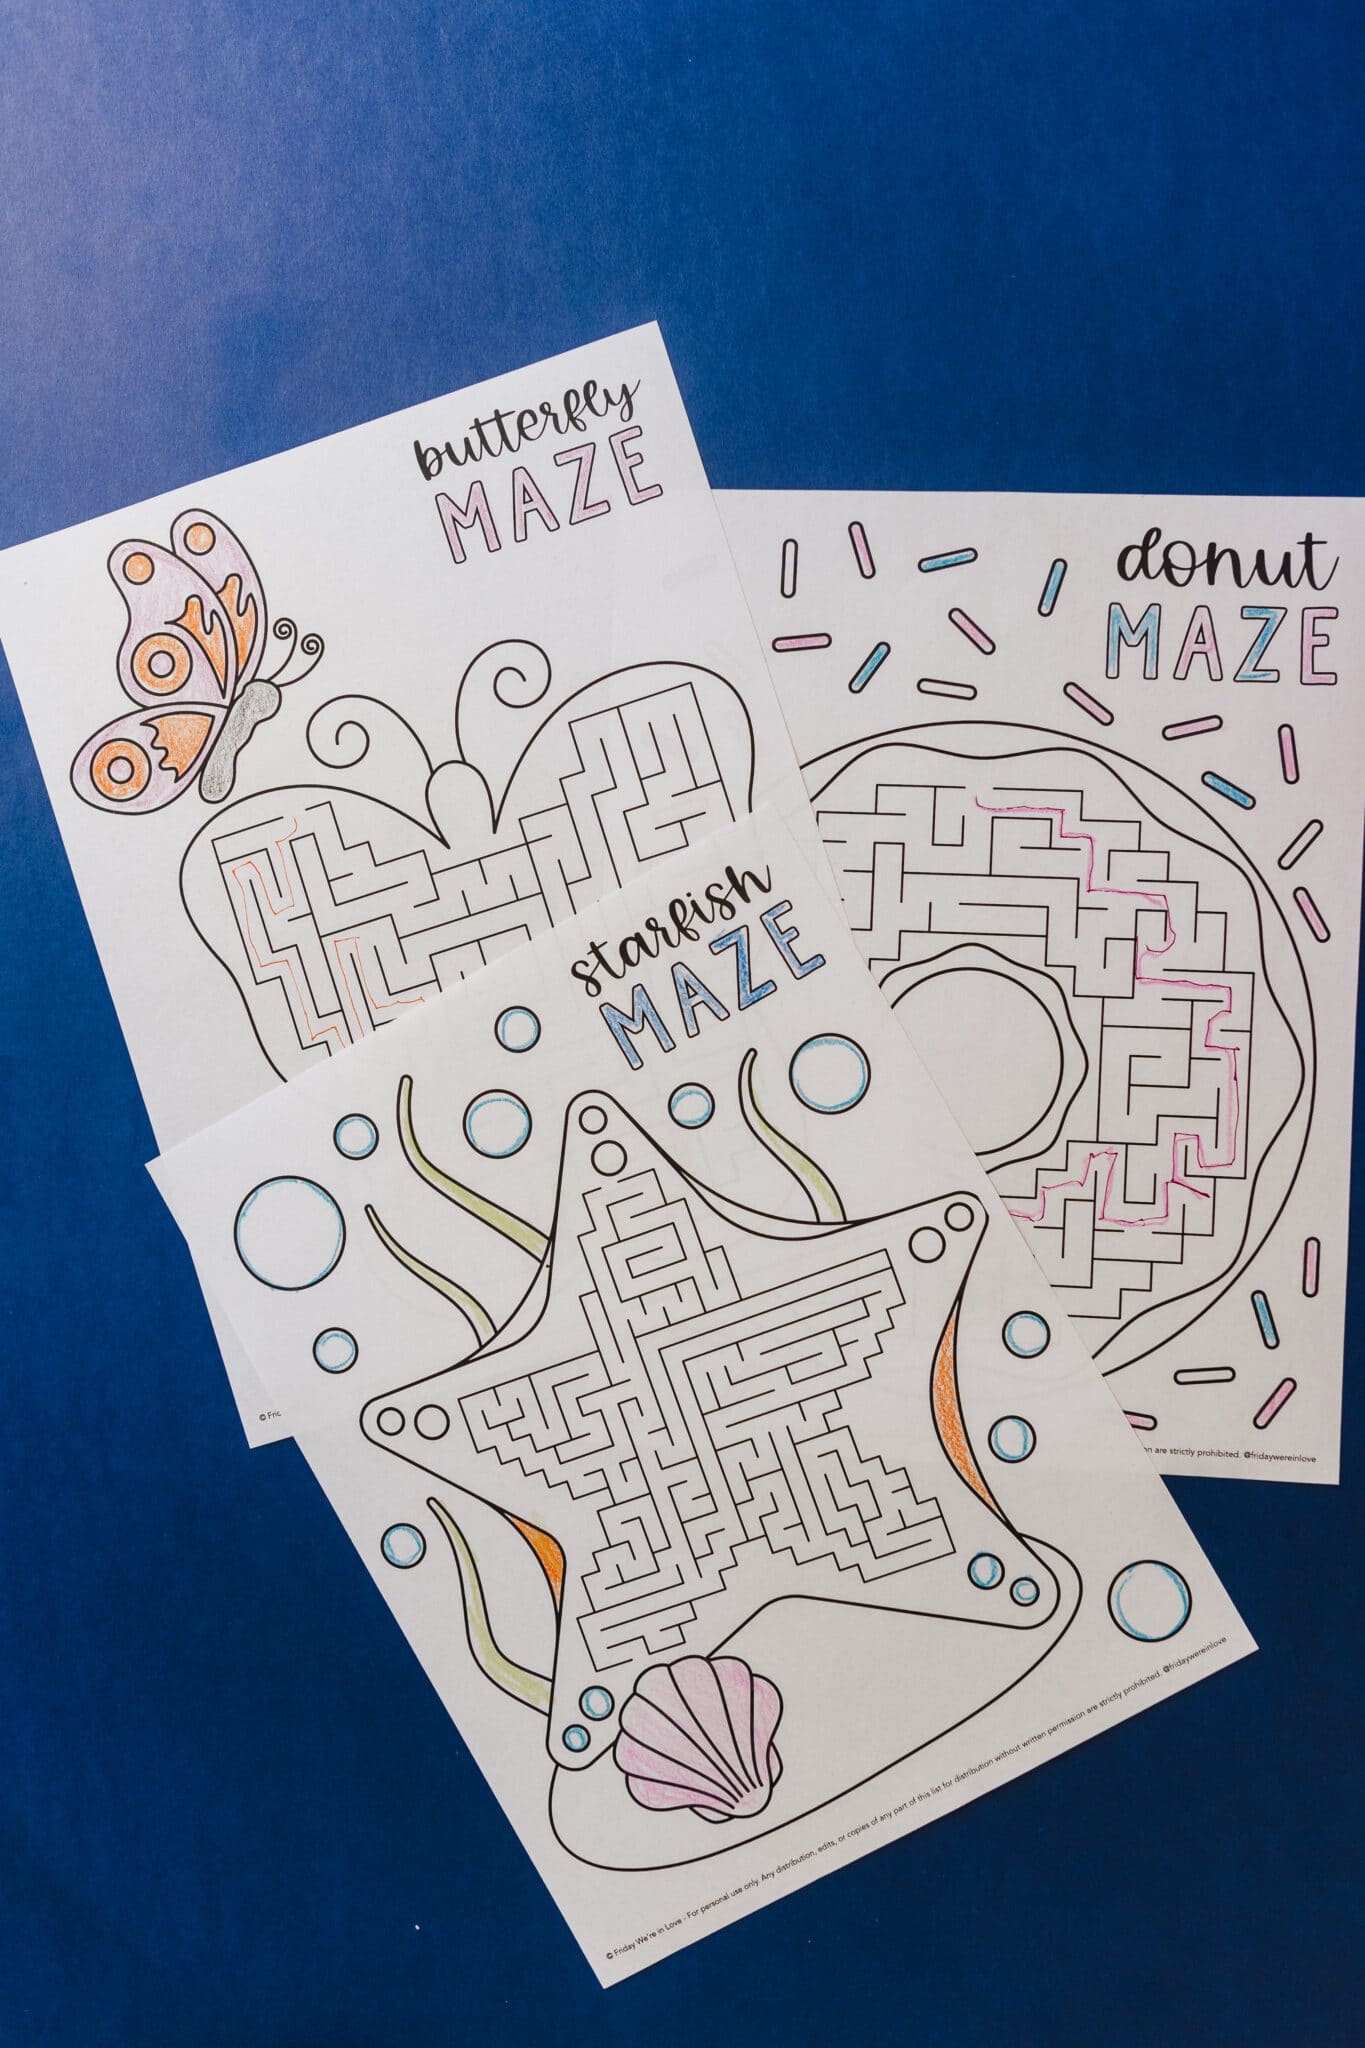 butterfly
MAZE
donut
MAZE
starfish
MAZE
© Fric
are strictly prohibited. @fridaywereinlove
© Friday We're in Love - For personal use only. Any distribution, edits, or copies of any part of this list for distribution without written permission are strictly prohibited. @fridaywereinlove